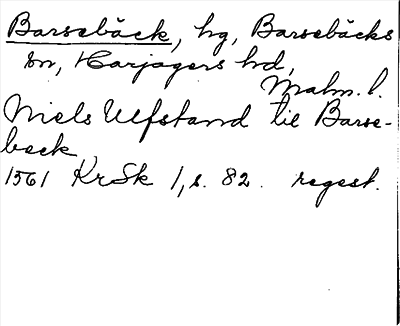 Barsebäck, hg, Barsebäcks
sn, Harjagers hd,
Malm. l.
Niels Ulfstand til Barse-
beck
1561 KrSk 1, s. 82. regest.